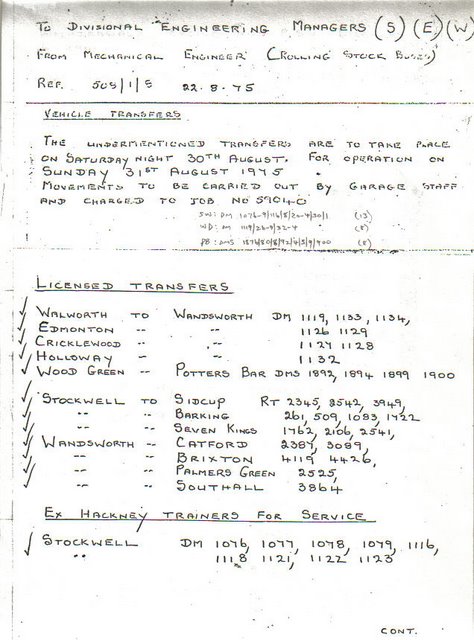 To Divisional Engineering Managers (S) (E) (W)
From Mechanical Engineer (Rolling Stock Buses)
Ref. 508/1/8 22.8.75
Vehicle Transfers
The undermentioned transfers are to take place
on Saturday night 30th August. For operation on
Sunday 31st August 1975.
Movements to be carried out by garage staff
and charged to job no 59040
SW: DM (13)
WD: DM 1119/26-9/32-4 (8)
PB: DMS (8)
Licensed Transfers
Walworth to Wandsworth DM 1119, 1133, 1134,
Edmonton -- -- 1126 1129
Cricklewood -- -- 1127 1128
Holloway -- -- 1132
Wood Green -- Potters Bar DMS 1892, 1894 1899 1900
Stockwell to Sidcup RT 2345, 2542, 3949,
-- -- Barking 261, 509, 1083, 1722
-- -- Seven Kings 1762, 2106, 2541,
Wandsworth -- Catford 2387, 3089,
-- -- Brixton 4119 4426,
-- -- Palmers Green 2525,
-- -- Southall 3864
Ex Hackney Trainers for Service
Stockwell DM 1076, 1077, 1078, 1079, 1116,
-- 1118 1121, 1122 1123
CONT.